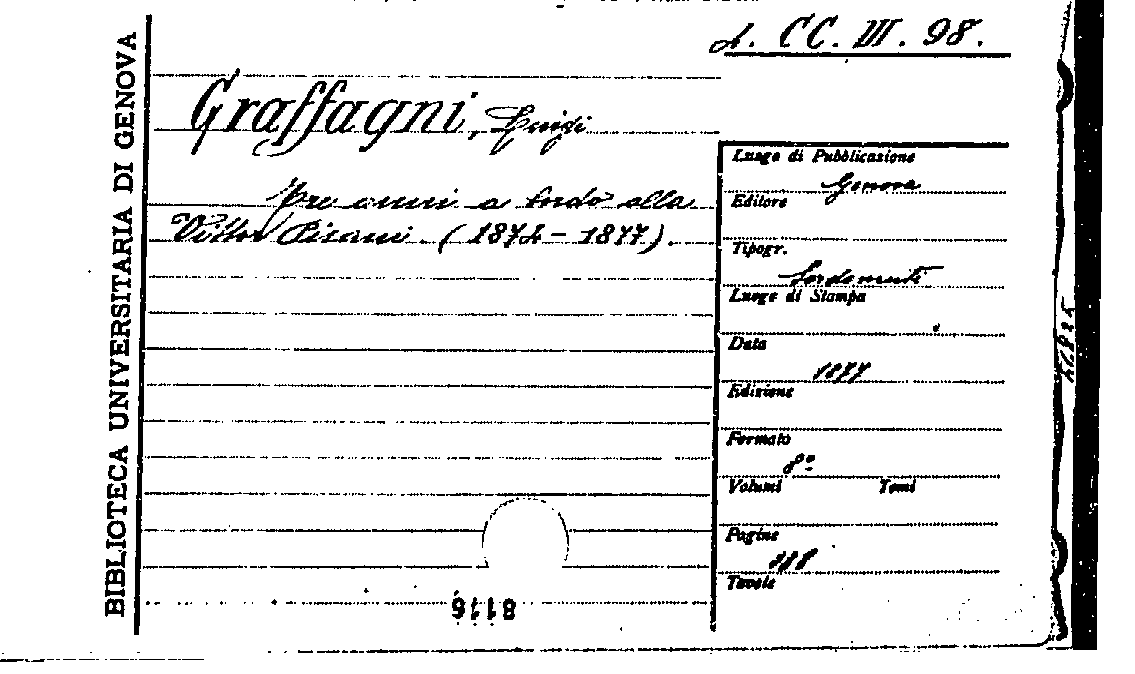 4. CC. VI. 98.
BIBLIOTECA UNIVERSITARIA DI GENOVA
Graffagni, Luigi
Tre anni a bordo alla
Vittor Pisani. (1874-1877).
Luogo di Pubblicazione
Genova
Editore
Tipogr.
Sordomuti
Luogo di Stampa
Data
1877
Edizione
Formato
8º
Volumi Tomi
Pagine
Tavole
8116